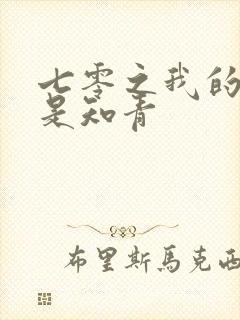 七零之我的
是知青
布里斯馬克西